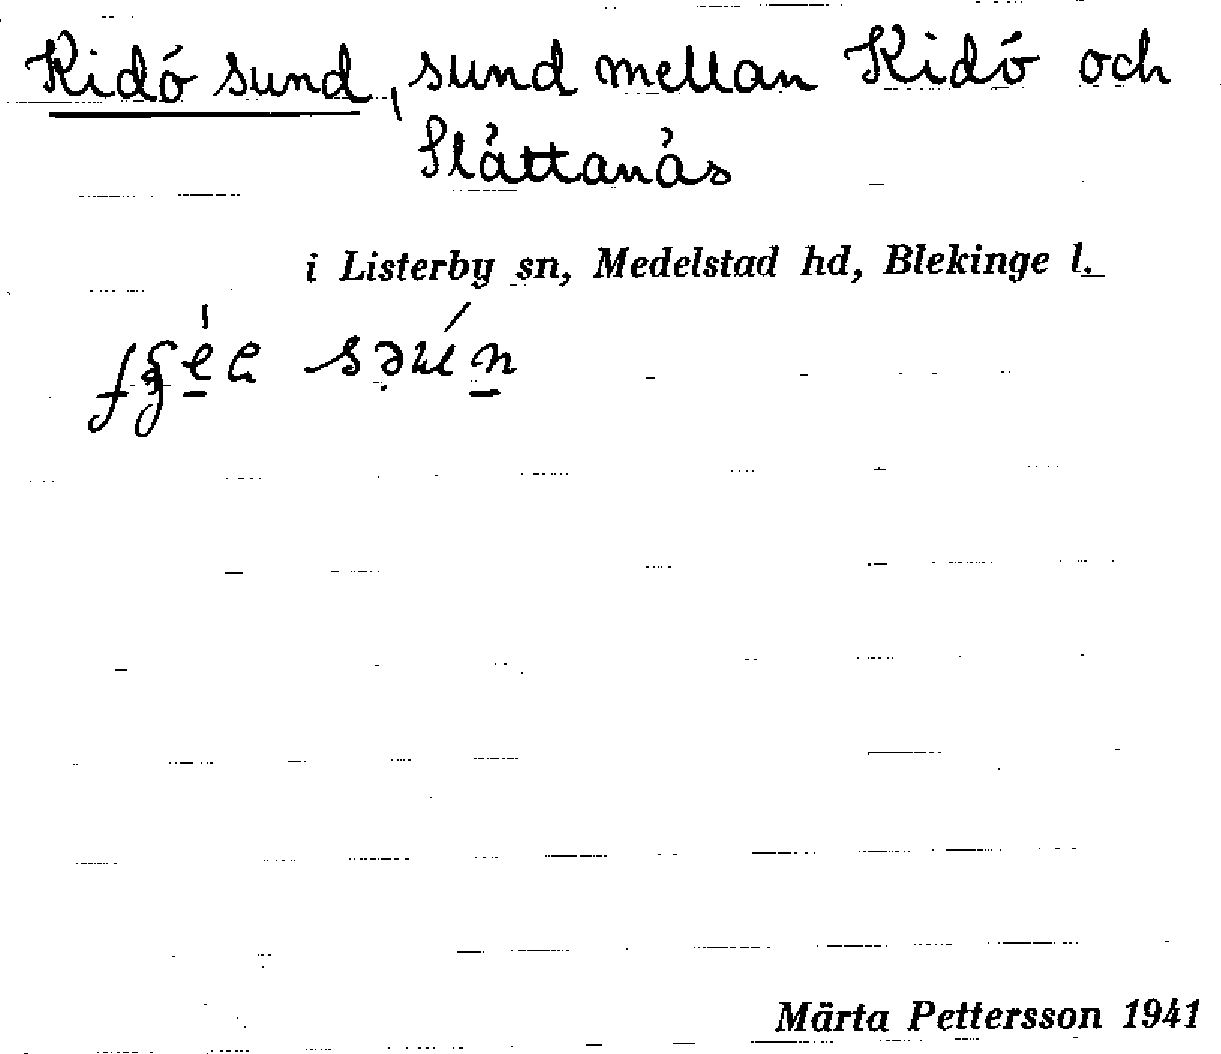 Kidö sund, sund mellan Kidö och
Slättanäs
i Listerby sn, Medelstad hd, Blekinge l.
Märta Pettersson 1941